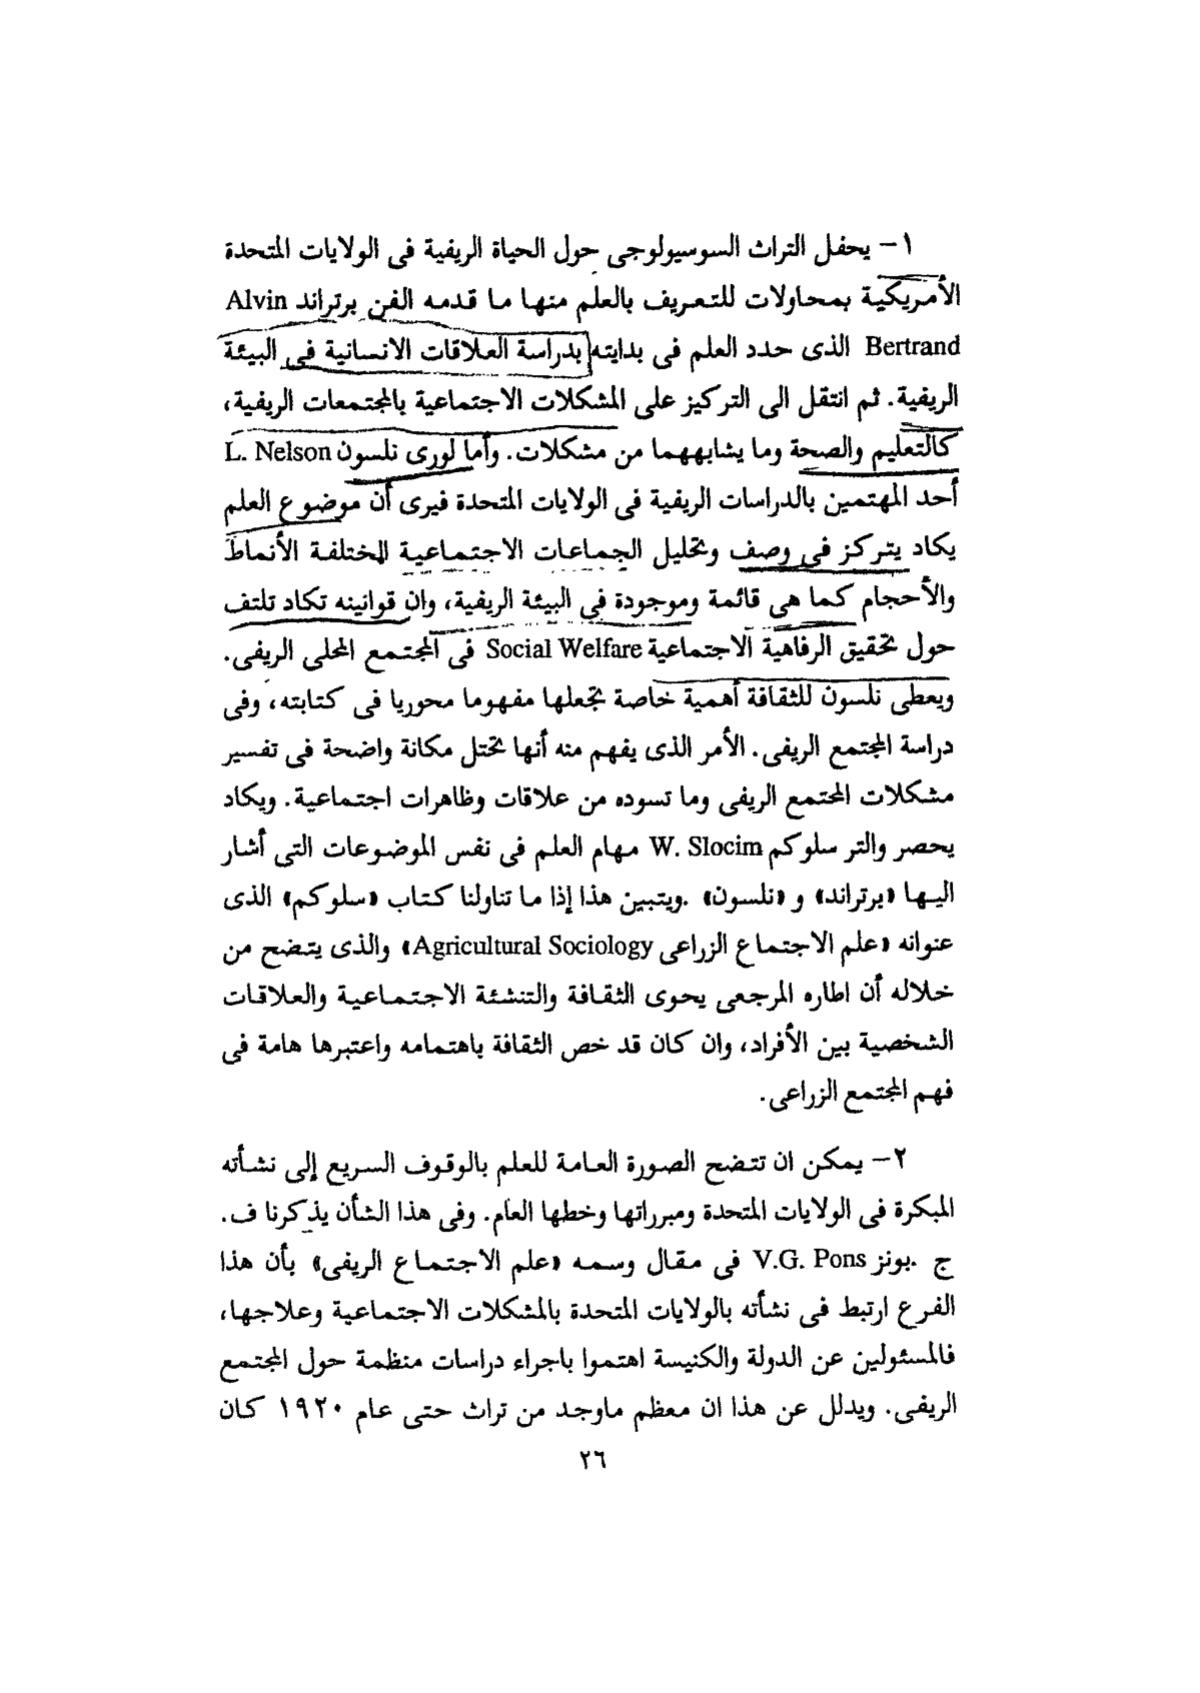 ١ – يحفل التراث السوسيولوجى حول الحياة الريفية فى الولايات المتحدة
الأمريكية بمحاولات للتعريف بالعلم منها ما قدمه الفن برتراند Alvin
Bertrand الذى حدد العلم فى بدايته بدراسة العلاقات الانسانية فى البيئة
الريفية. ثم انتقل الى التركيز على المشكلات الاجتماعية بالمجتمعات الريفية،
كالتعليم والصحة وما يشابههما من مشكلات. وأما لورى نلسون L. Nelson
أحد المهتمين بالدراسات الريفية فى الولايات المتحدة فيرى أن موضوع العلم
يكاد يتركز فى وصف وتحليل الجماعات الاجتماعية المختلفة الأنماط
والأحجام كما هى قائمة وموجودة فى البيئة الريفية، وان قوانينه تكاد تلتف
حول تحقيق الرفاهية الاجتماعية Social Welfare فى المجتمع المحلى الريفى.
ويعطى نلسون للثقافة أهمية خاصة تجعلها مفهوما محوريا فى كتابته، وفى
دراسة المجتمع الريفى. الأمر الذى يفهم منه أنها تحتل مكانة واضحة فى تفسير
مشكلات المجتمع الريفى وما تسوده من علاقات وظاهرات اجتماعية. ويكاد
يحصر والتر سلوكم W. Slocim مهام العلم فى نفس الموضوعات التى أشار
اليها «برتراند» و «نلسون» .ويتبين هذا إذا ما تناولنا كتاب «سلوكم» الذى
عنوانه «علم الاجتماع الزراعى Agricultural Sociology» والذى يتضح من
خلاله أن اطاره المرجعى يحوى الثقافة والتنشئة الاجتماعية والعلاقات
الشخصية بين الأفراد، وان كان قد خص الثقافة باهتمامه واعتبرها هامة فى
فهم المجتمع الزراعى.
٢ – يمكن ان تتضح الصورة العامة للعلم بالوقوف السريع إلى نشأته
المبكرة فى الولايات المتحدة ومبرراتها وخطها العام. وفى هذا الشأن يذكرنا ف.
ج .بونز V.G. Pons فى مقال وسمه «علم الاجتماع الريفى» بأن هذا
الفرع ارتبط فى نشأته بالولايات المتحدة بالمشكلات الاجتماعية وعلاجها،
فالمسئولين عن الدولة والكنيسة اهتموا باجراء دراسات منظمة حول المجتمع
الريفى. ويدلل عن هذا ان معظم ماوجد من تراث حتى عام ١٩٢٠ كان
٢٦